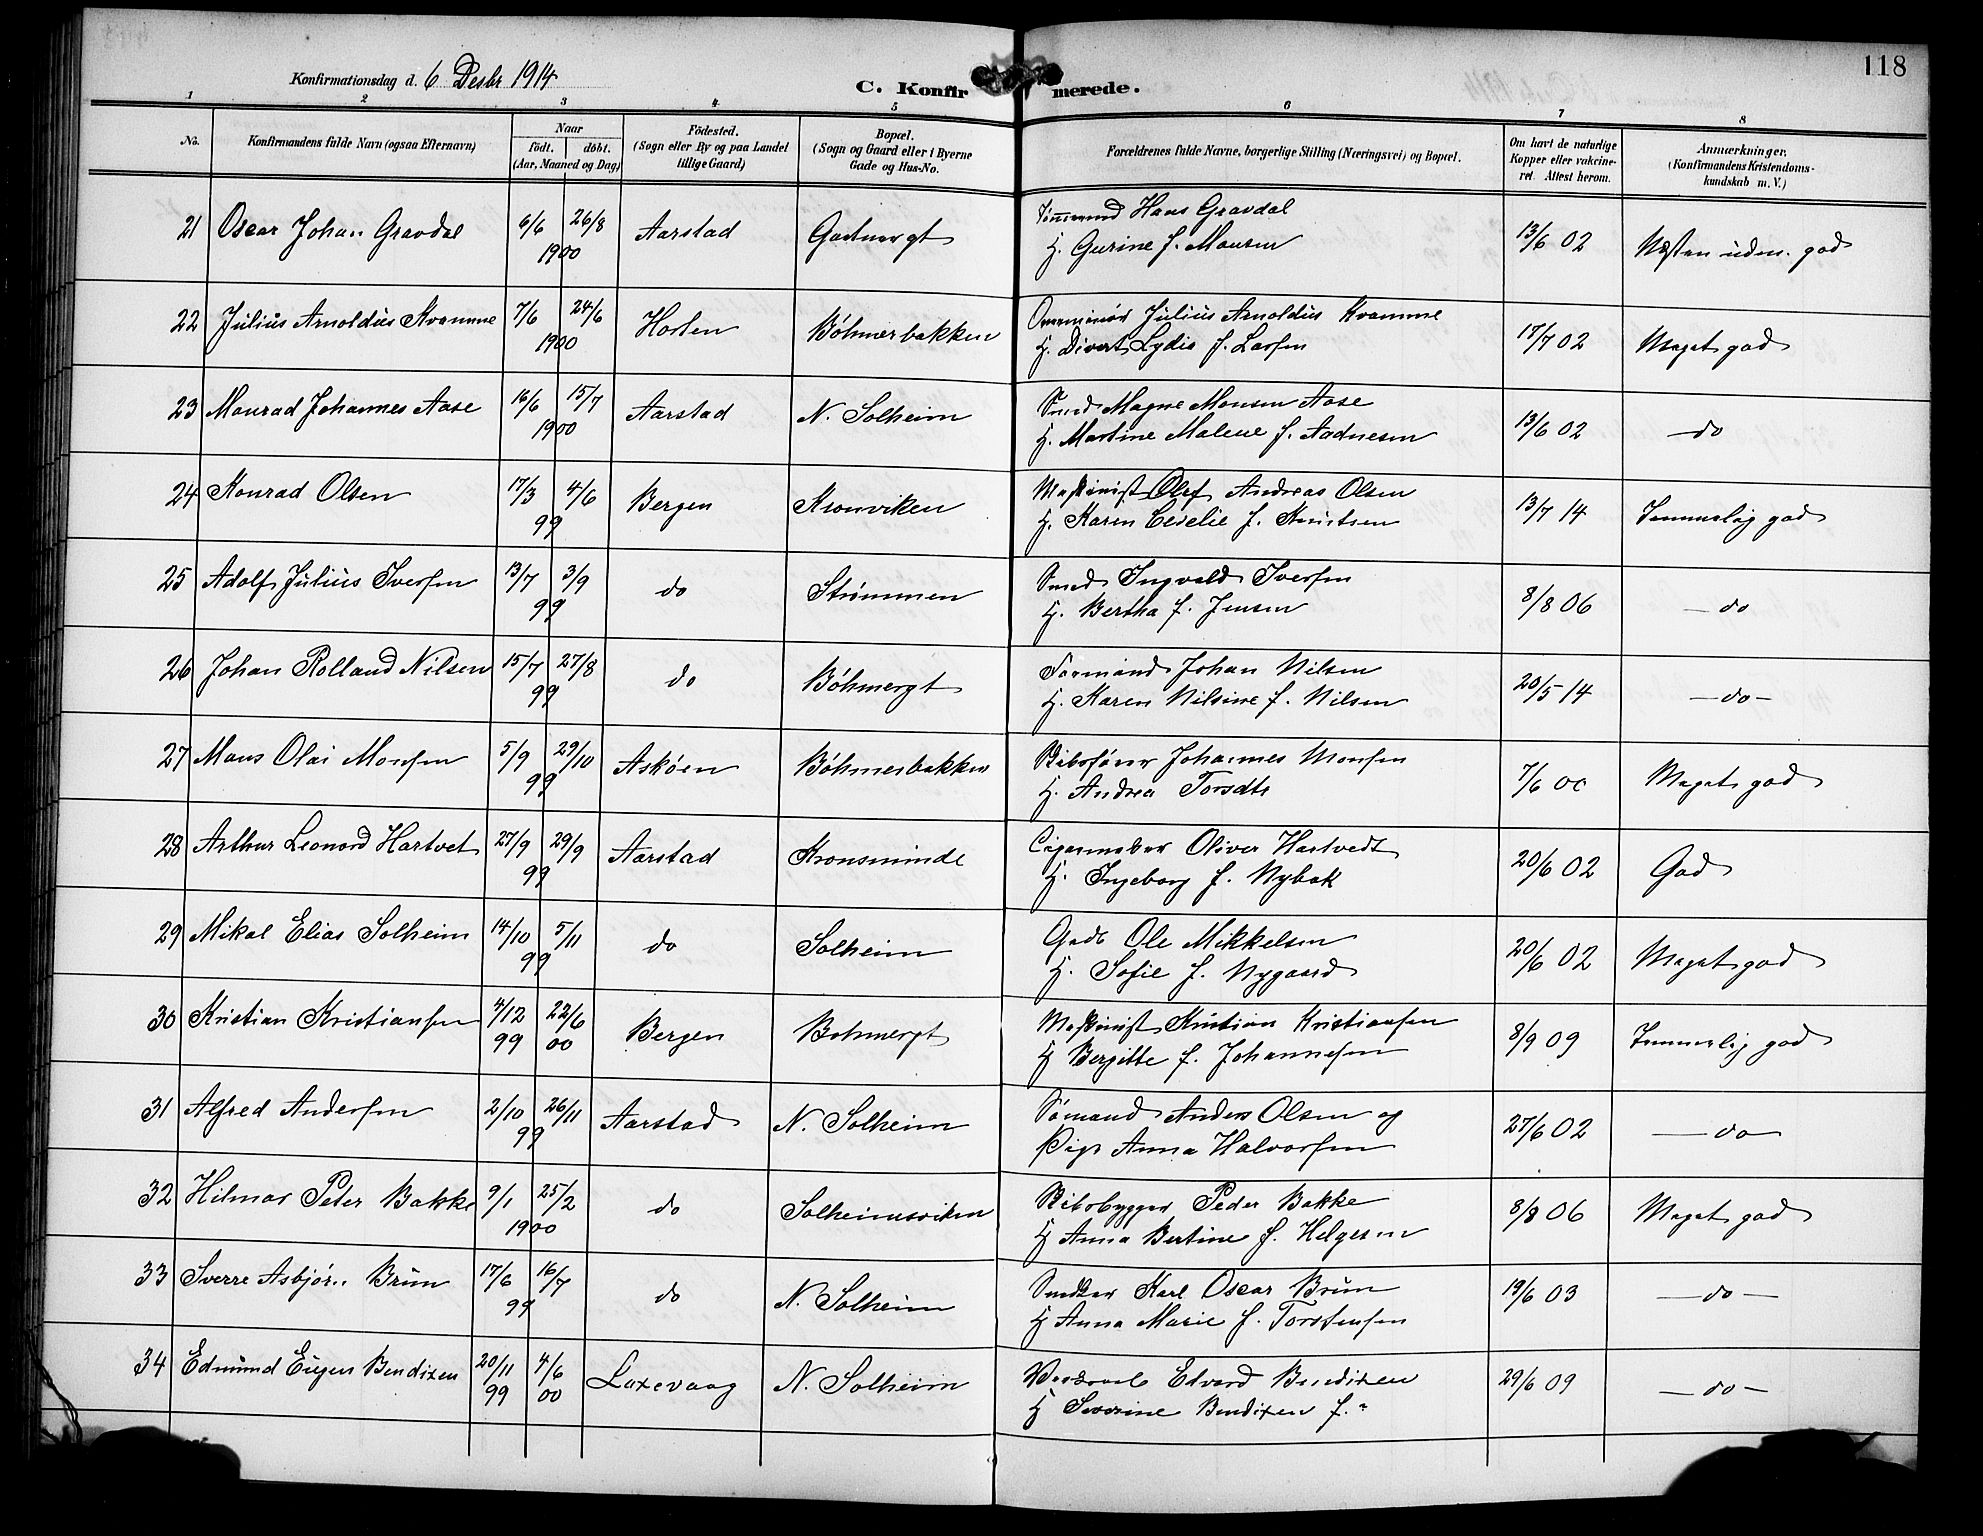 118
Konfirmationsdag d. 6 Desbr 1914
C. Konfirmerede.
1 2 3 4 5 6 7 8
No. Konfirmandens fulde Navn (ogsaa Efternavn) Naar födt. döbt. (Aar, Maaned og Dag) Födested. (Sogn eller By og paa Landet tillige Gaard) Bopæl. (Sogn og Gaard eller i Byerne Gade og Hus-No. Forældrenes fulde Navne, borgerlige Stilling (Næringsvei) og Bopæl. Om havt de naturlige Kopper eller vakcineret. Attest herom. Anmærkninger. (Konfirmandens Kristendomskundskab m. V.)
21 Oscar Johan Gravdal 6/6 26/8 1900 Aarstad Hans Gravdal 13/6 02 Næsten udm. god
H. Gurine f. Monsen
22 Julius Arnoldus Kvamme 7/6 24/6 1900 Horten Böhmerbakken Julius Arnoldus Kvamme 17/7 02 Meget god
H. Divert Lydia f. Larsen
23 Monrad Johannes Aase 16/6 15/7 1900 Aarstad N. Solheim Smed Magne Monsen Aase 13/6 02 do
H. Martine Malene f. Aadnesen
24 Konrad Olsen 17/3 4/6 99 Bergen Kronviken Maskinist Olef Andreas Olsen 13/7 14 Temmelig god
H. Karen Cecelie f. Knutsen
25 Adolf Julius Iversen 13/7 3/9 99 do Strömmen Smed Ingvald Iversen 8/8 06 - do
H. Bertha f. Jensen
26 Johan Rolland Nilsen 15/7 27/8 99 do Böhmergt Formand Johan Nilsen 20/5 14 - do -
H. Karen Nilsine f. Nilsen
27 Mons Olai Monsen 5/9 29/10 99 Asköen Böhmerbakken Skibsförer Johannes Monsen 7/6 00 Meget god
H. Andrea Torsdtr
28 Arthur Leonord Hartvet 27/9 29/9 99 Aarstad Kronsminde Cigarmaker Oliver Hartvedt 20/6 02 God
H. Ingeborg f. Nybak
29 Mikal Elias Solheim 14/10 5/11 99 do Solheim Gadb Ole Mikkelsen 20/6 02 Meget god
H. Sofie f. Nygaard
30 Kristian Kristiansen 4/12 99 22/6 00 Bergen Bohmergt Maskinist Kristian Kristiansen 8/9 09 Temmelig god
H Bergitte f. Johannesen
31 Alfred Andersen 2/10 26/11 99 Aarstad N. Solheim Sömand Anders Olsen og 27/6 02 - do
Pige Anna Halvorsen
32 Hilmar Peter Bakke 9/1 25/2 1900 do Solheimsviken Skibsbygger Peder Bakke 8/8 06 Meget god
H Anna Bertine f. Helgesen
33 Sverre Asbjörn Brun 17/6 16/7 99 do N. Solheim Karl Oscar Brun 19/6 03 - do -
H Anna Marie f. Torstensen
34 Edmund Eugen Bendixen 20/11 99 4/6 00 Laxevaag N. Solheim Edvard Bendixen 29/6 09 - do -
H Severine Bendixen f. "